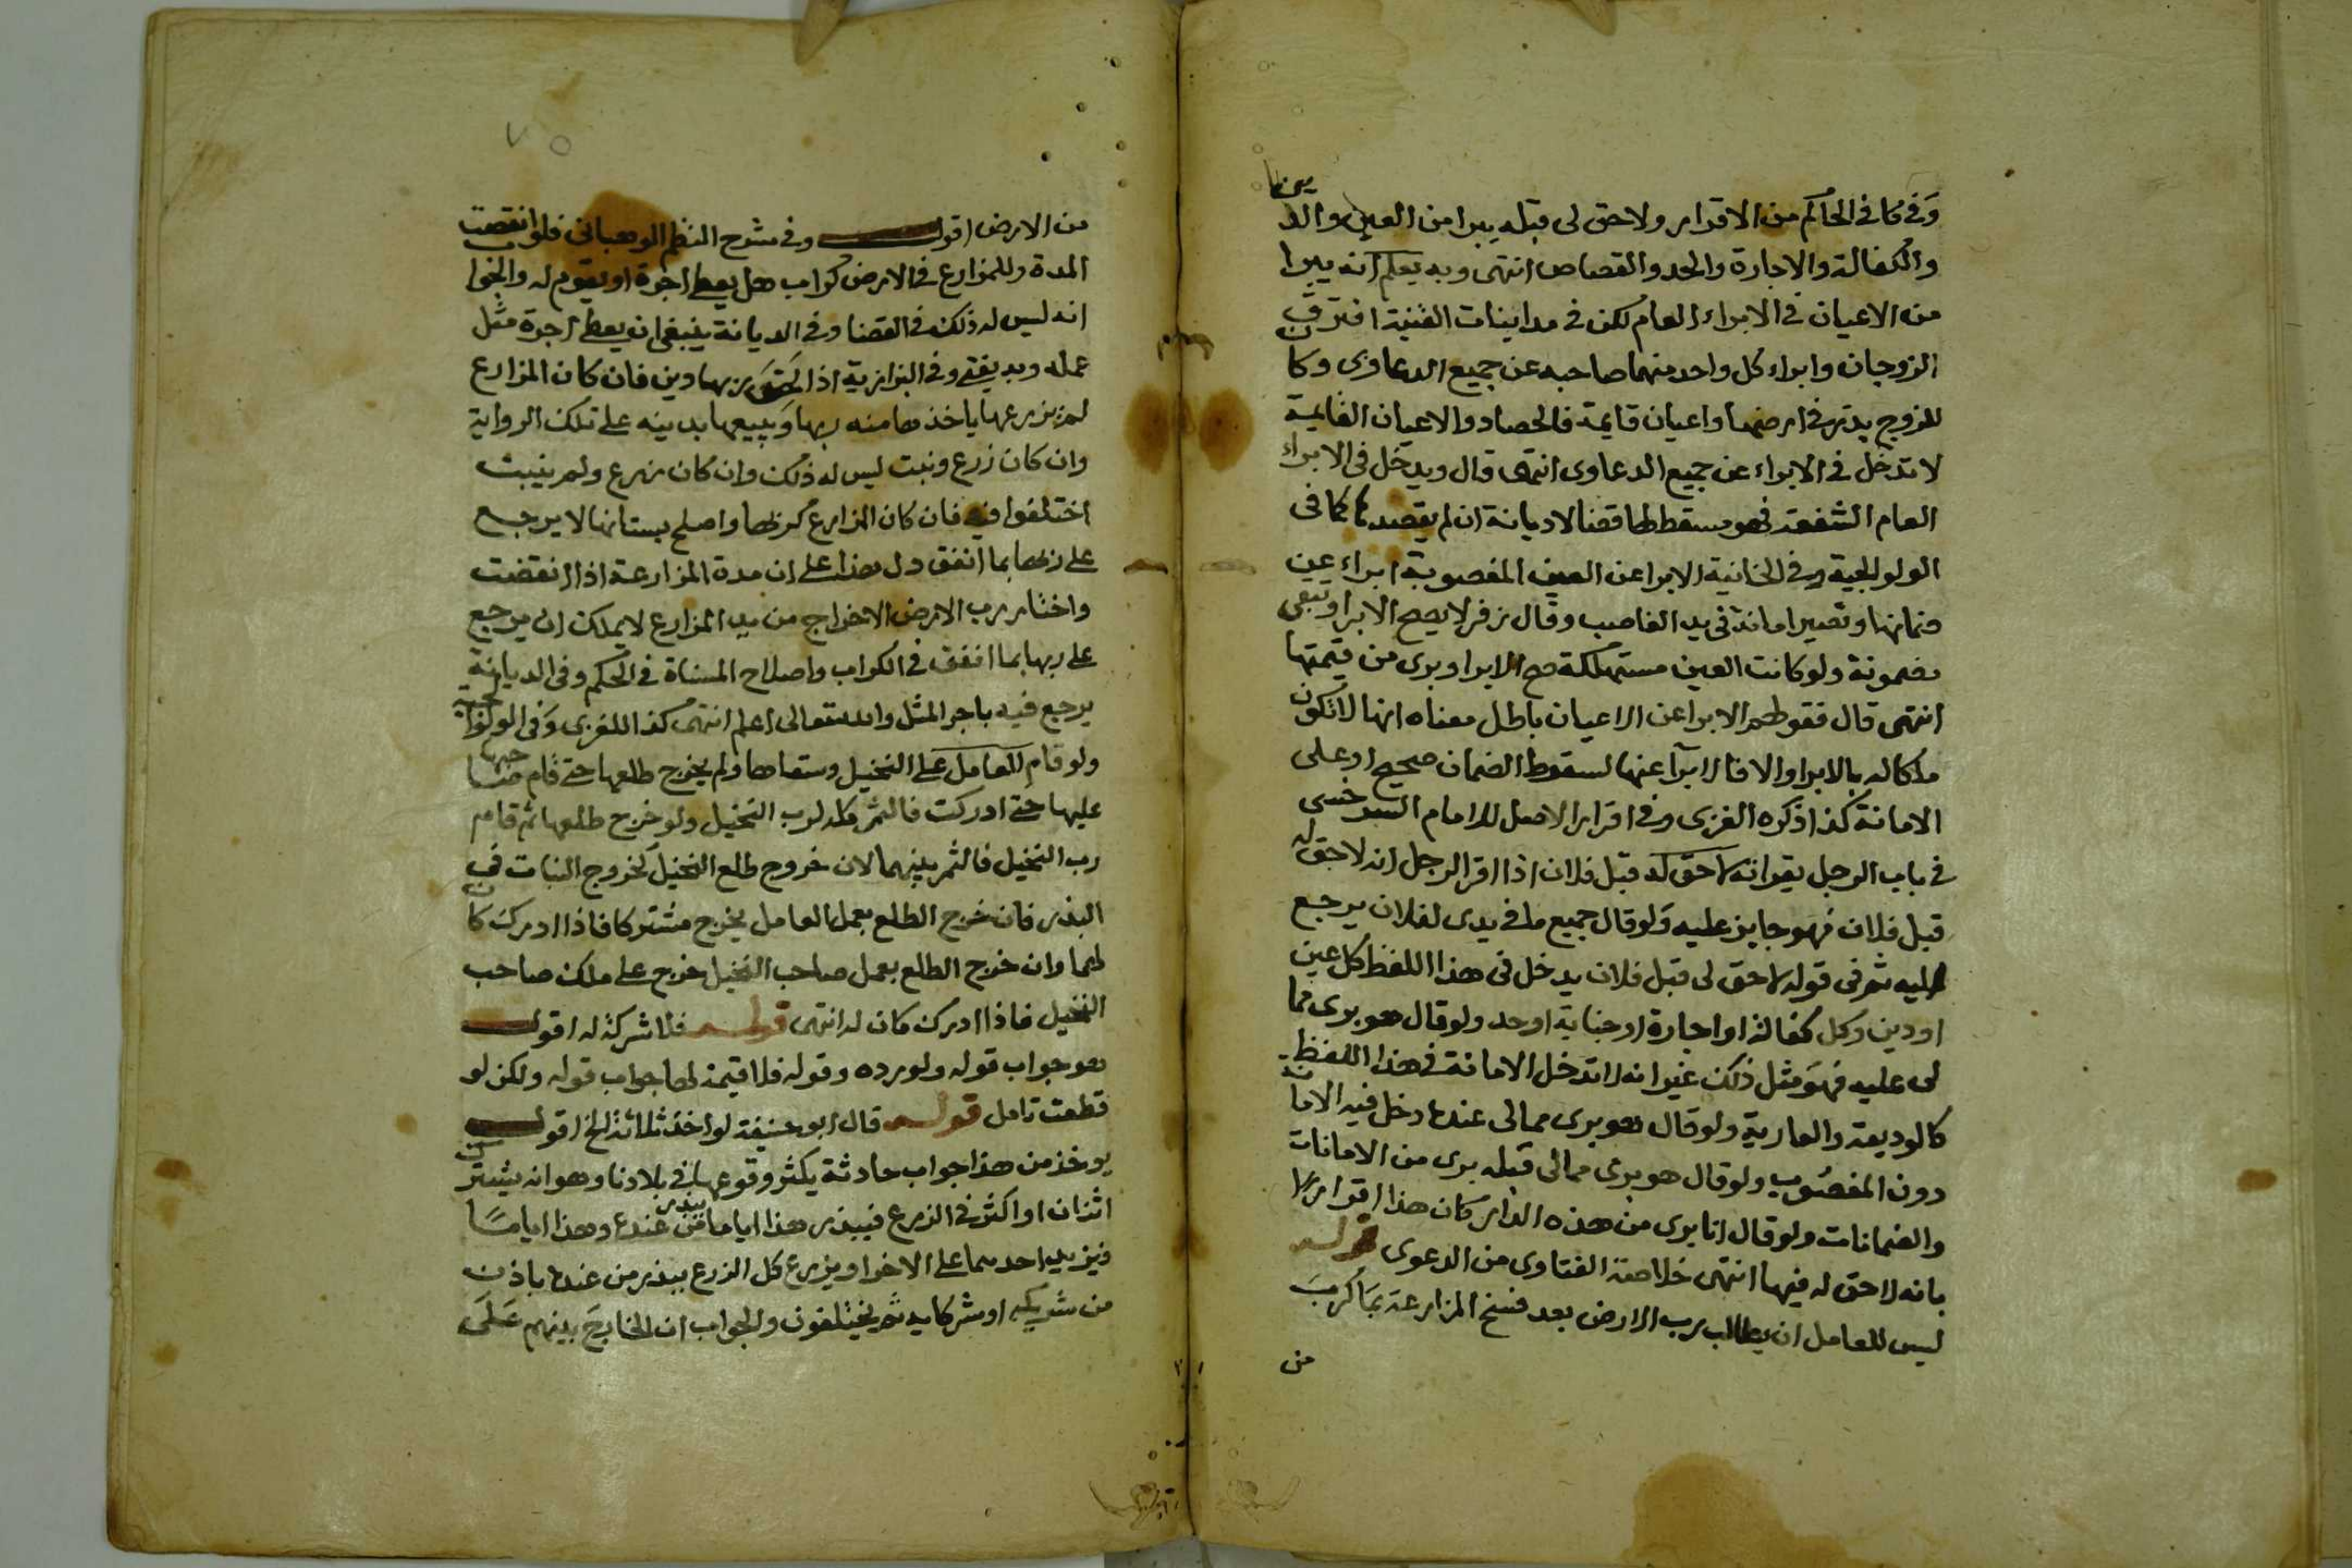 وفي كافي الحاكم من الاقرار ولا حق لي قبله يبرا من العين والدين
والكفالة والاجارة والحد والقصاص انتهى وبه يعلم انه يبرا
من الاعيان في الابراء العام لكن في مداينات القنية افترق
الزوجان وابراء كل واحد منهما صاحبه عن جميع الدعاوى وكان
للزوج بذر في ارضها واعيان قايمة فالحصاد والاعيان القايمة
لا تدخل في الابراء عن جميع الدعاوى انتهى قال ويدخل في الابراء
العام الشفعة فهو مسقط لها قضا لا ديانة ان لم يقصدها كما في
الولوالجية وفي الخانية الابرا عن العين المغصوبة ابراء عن
ضمانها وتصير امانة في يد الغاصب وقال زفر لا يصح الابرا وتبقى
مضمونة ولو كانت العين مستهلكة صح الابرا وبرى من قيمتها
انتهى قال فقولهم الابرا عن الاعيان باطل معناه انها لا تكون
ملكا له بالابرا والا فالابرآ عنها لسقوط الضمان صحيح او على
الامانة كذا ذكره الغزي وفي اقرار الاصل للامام السرخسى
في باب الرجل يقر انه لا حق له قبل فلان اذا اقر الرجل انه لا حق له
قبل فلان فهو جايز عليه ولو قال جميع ما في يدى لفلان يرجع
اليه ثم في قوله لا حق لى قبل فلان يدخل في هذا اللفظ كل عين
او دين وكل كفالة او اجارة او جناية او حد ولو قال هو برى مما
لى عليه فهو مثل ذلك غير انه لا تدخل الامانة في هذا اللفظ
كالوديعة والعارية ولو قال هو برى مما لى عنده دخل فيه الامانة
دون المغصوب ولو قال هو برى مما لى قبله برى من الامانات
والضمانات ولو قال انا برى من هذه الدار كان هذا اقرارا
بانه لا حق له فيها انتهى خلاصة الفتاوى من الدعوى قوله
ليس للعامل ان يطالب رب الارض بعد فسخ المزارعة بما كرب
من
٧٥
من الارض اقول وفي شرح النظم الوهباني فلو انقضت
المدة وللمزارع في الارض كراب هل يعطى اجرة او يقوم له والجواب
انه ليس له ذلك في القضا وفي الديانة ينبغي ان يعطى اجرة مثل
عمله وبه يفتى وفي البزازية اذا لحق ربها دين فان كان المزارع
لم يزرعها ياخذها منه ربها ويبيعها بدينه على تلك الرواية
وان كان زرع ونبت ليس له ذلك وان كان زرع ولم ينبت
اختلفوا فيه فان كان المزارع كربها واصلح بستانها لا يرجع
على ربها بما انفق دل هذا على ان مدة المزارعة اذا انقضت
واختار رب الارض الاخراج من يد المزارع لا يملك ان يرجع
على ربها بما انفق في الكراب واصلاح المسناة في الحكم وفي الديانة
يرجع فيه باجر المثل والله تعالى اعلم انتهى كذا للغزى وفي الولوالجية
ولو قام العامل على النخيل وسقاها ولم يخرج طلعها حتى قام صاحبها
عليها حتى ادركت فالثمر كله لرب النخيل ولو خرج طلعها ثم قام
رب النخيل فالثمر بينهما لان خروج طلع النخيل كخروج النبات في
البذر فان خرج الطلع بعمل العامل يخرج مشتركا فاذا ادرك كان
لهما وان خرج الطلع بعمل صاحب النخيل خرج على ملك صاحب
النخيل فاذا ادرك كان له انتهى قوله فلا شركة له اقول
هو جواب قوله ولو رده وقوله فلا قيمة لها جواب قوله ولكن لو
قطعت تامل قوله قال ابو حنيفة لو اخذ ثلاثة الخ اقول
يوخذ من هذا جواب حادثة يكثر وقوعها في بلادنا وهو انه يشترك
اثنان او اكثر في الزرع فيبذر هذا اياما من عنده وهذا اياما
فيزيد احدهما على الاخر او يزرع كل الزرع ببذر من عنده باذن
من شريكه او شركايه ثم يختلفون والجواب ان الخارج بينهم على